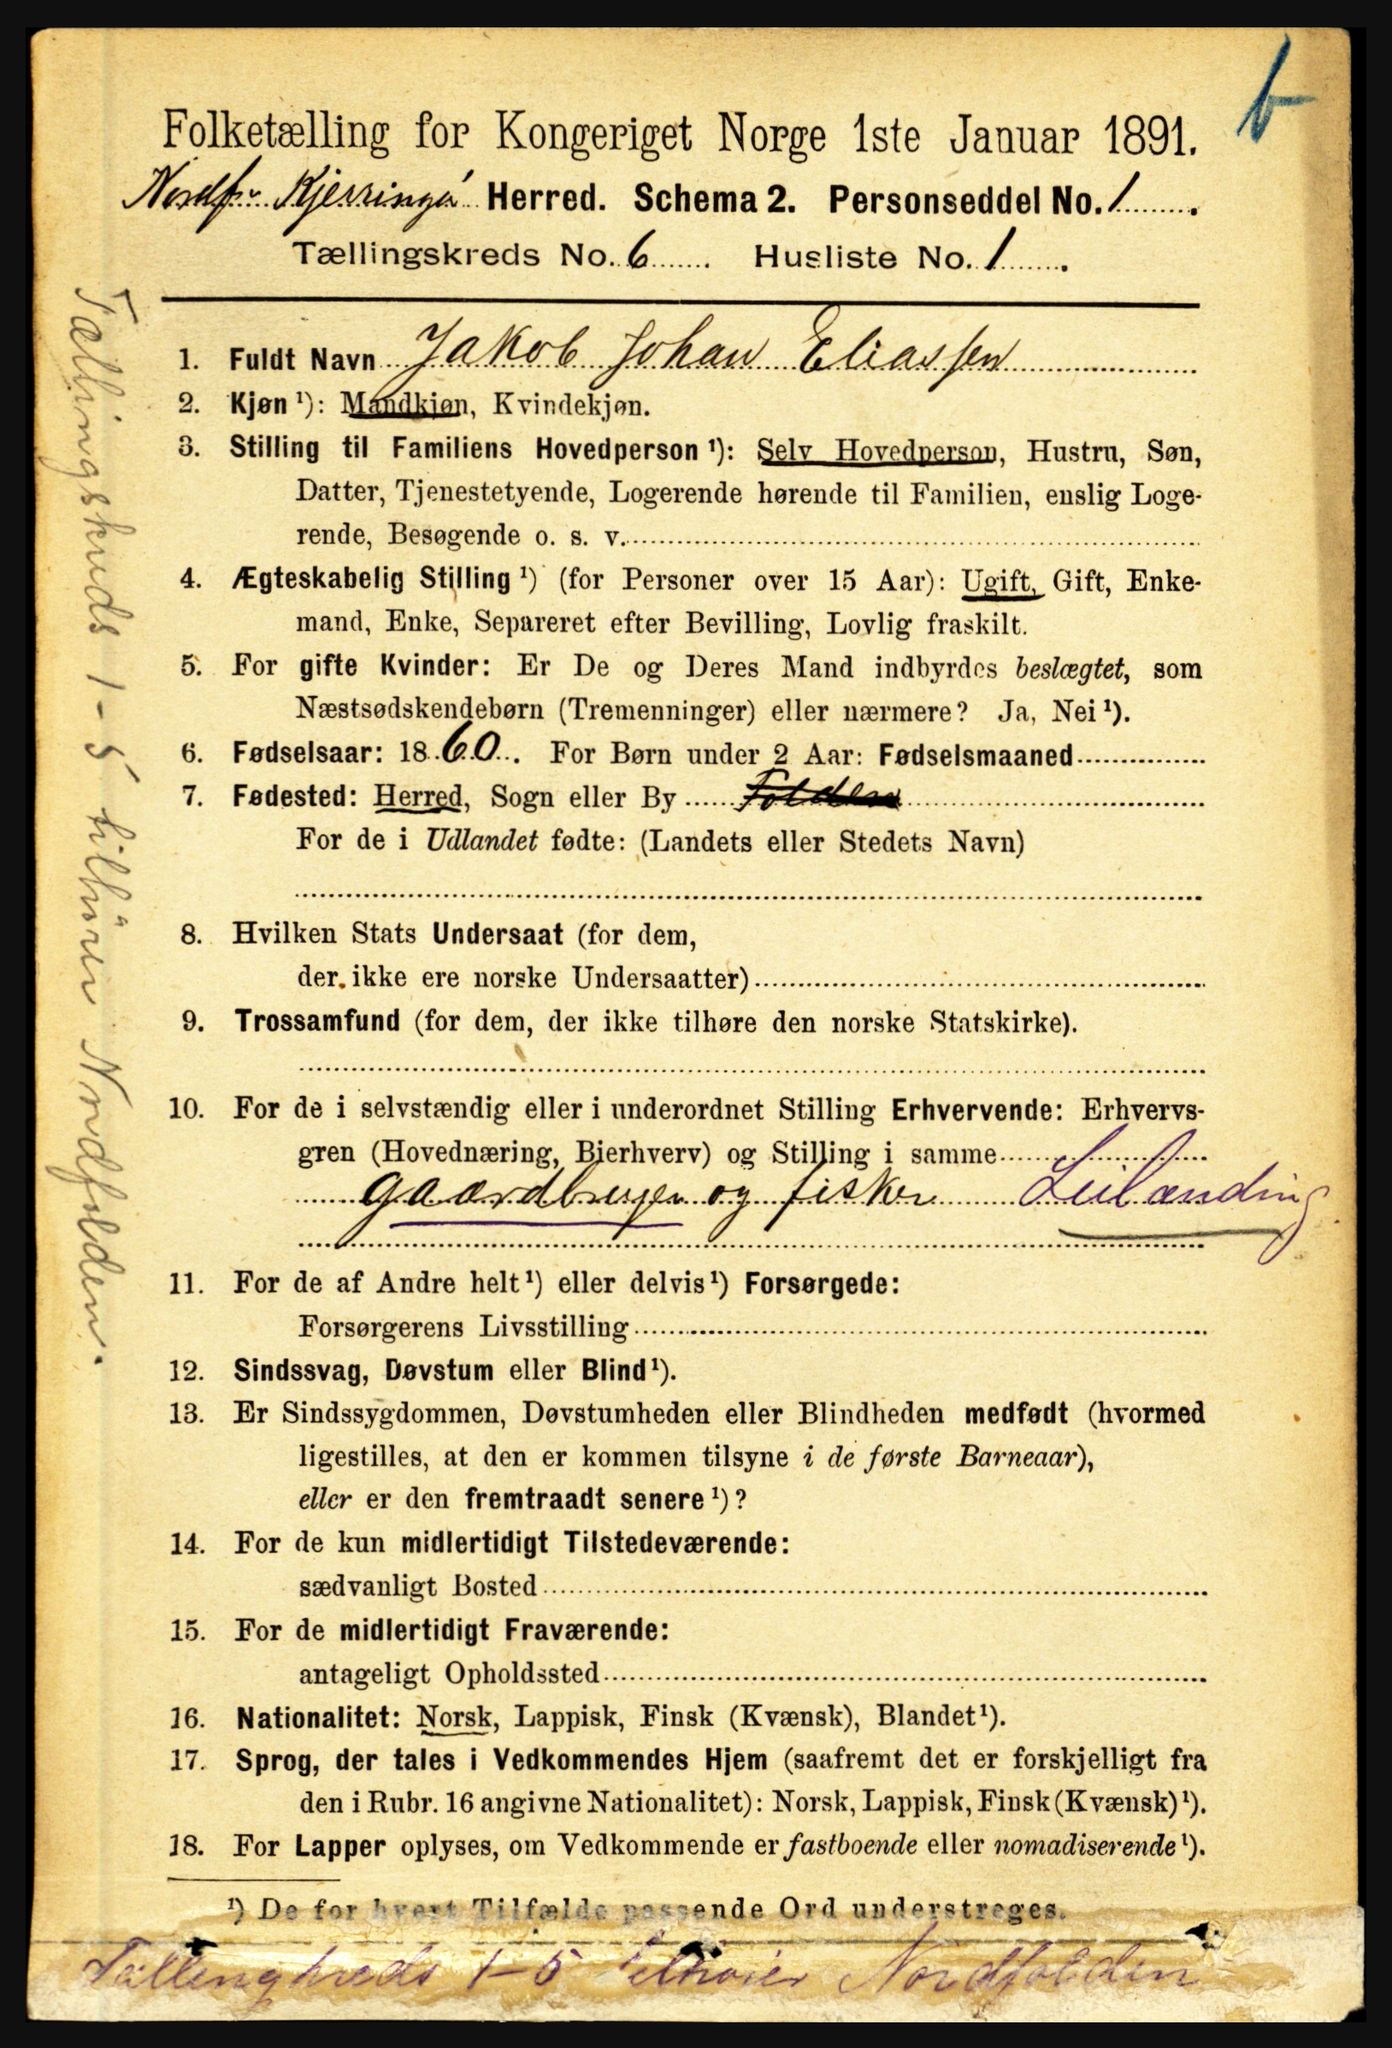 b
Folketælling for Kongeriget Norge 1ste Januar 1891.
Nordf. Kjerringø Herred. Schema 2. Personseddel No. 1.
Tællingskreds No. 6. Husliste No. 1.
1. Fuldt Navn Jakob Johan Eliassen
2. Kjøn¹): Mandkjøn, Kvindekjøn.
3. Stilling til Familiens Hovedperson¹): Selv Hovedperson, Hustru, Søn,
Datter, Tjenestetyende, Logerende hørende til Familien, enslig Loge-
rende, Besøgende o. s. v.
4. Ægteskabelig Stilling¹) (for Personer over 15 Aar): Ugift, Gift, Enke-
mand, Enke, Separeret efter Bevilling, Lovlig fraskilt.
5. For gifte Kvinder: Er De og Deres Mand indbyrdes beslægtet, som
Næstsødskendebørn (Tremenninger) eller nærmere? Ja, Nei¹).
6. Fødselsaar: 1860. For Børn under 2 Aar: Fødselsmaaned
7. Fødested: Herred, Sogn eller By Folden
For de i Udlandet fødte: (Landets eller Stedets Navn)
8. Hvilken Stats Undersaat (for dem,
der ikke ere norske Undersaatter)
9. Trossamfund (for dem, der ikke tilhøre den norske Statskirke).
10. For de i selvstændig eller i underordnet Stilling Erhvervende: Erhvervs-
gren (Hovednæring, Bierhverv) og Stilling i samme
gaardbruger og fisker Leilænding
11. For de af Andre helt¹) eller delvis¹) Forsørgede:
Forsørgerens Livsstilling
12. Sindssvag, Døvstum eller Blind¹).
13. Er Sindssygdommen, Døvstumheden eller Blindheden medfødt (hvormed
ligestilles, at den er kommen tilsyne i de første Barneaar),
eller er den fremtraadt senere¹)?
14. For de kun midlertidigt Tilstedeværende:
sædvanligt Bosted
15. For de midlertidigt Fraværende:
antageligt Opholdssted
16. Nationalitet: Norsk, Lappisk, Finsk (Kvænsk), Blandet¹).
17. Sprog, der tales i Vedkommendes Hjem (saafremt det er forskjelligt fra
den i Rubr. 16 angivne Nationalitet): Norsk, Lappisk, Finsk (Kvænsk)¹).
18. For Lapper oplyses, om Vedkommende er fastboende eller nomadiserende¹).
¹) De for hvert Tilfælde passende Ord understreges.
Tællingkreds 1-5 Nordfolden
Tællingskreds 1-5 tilhører Nordfolden.